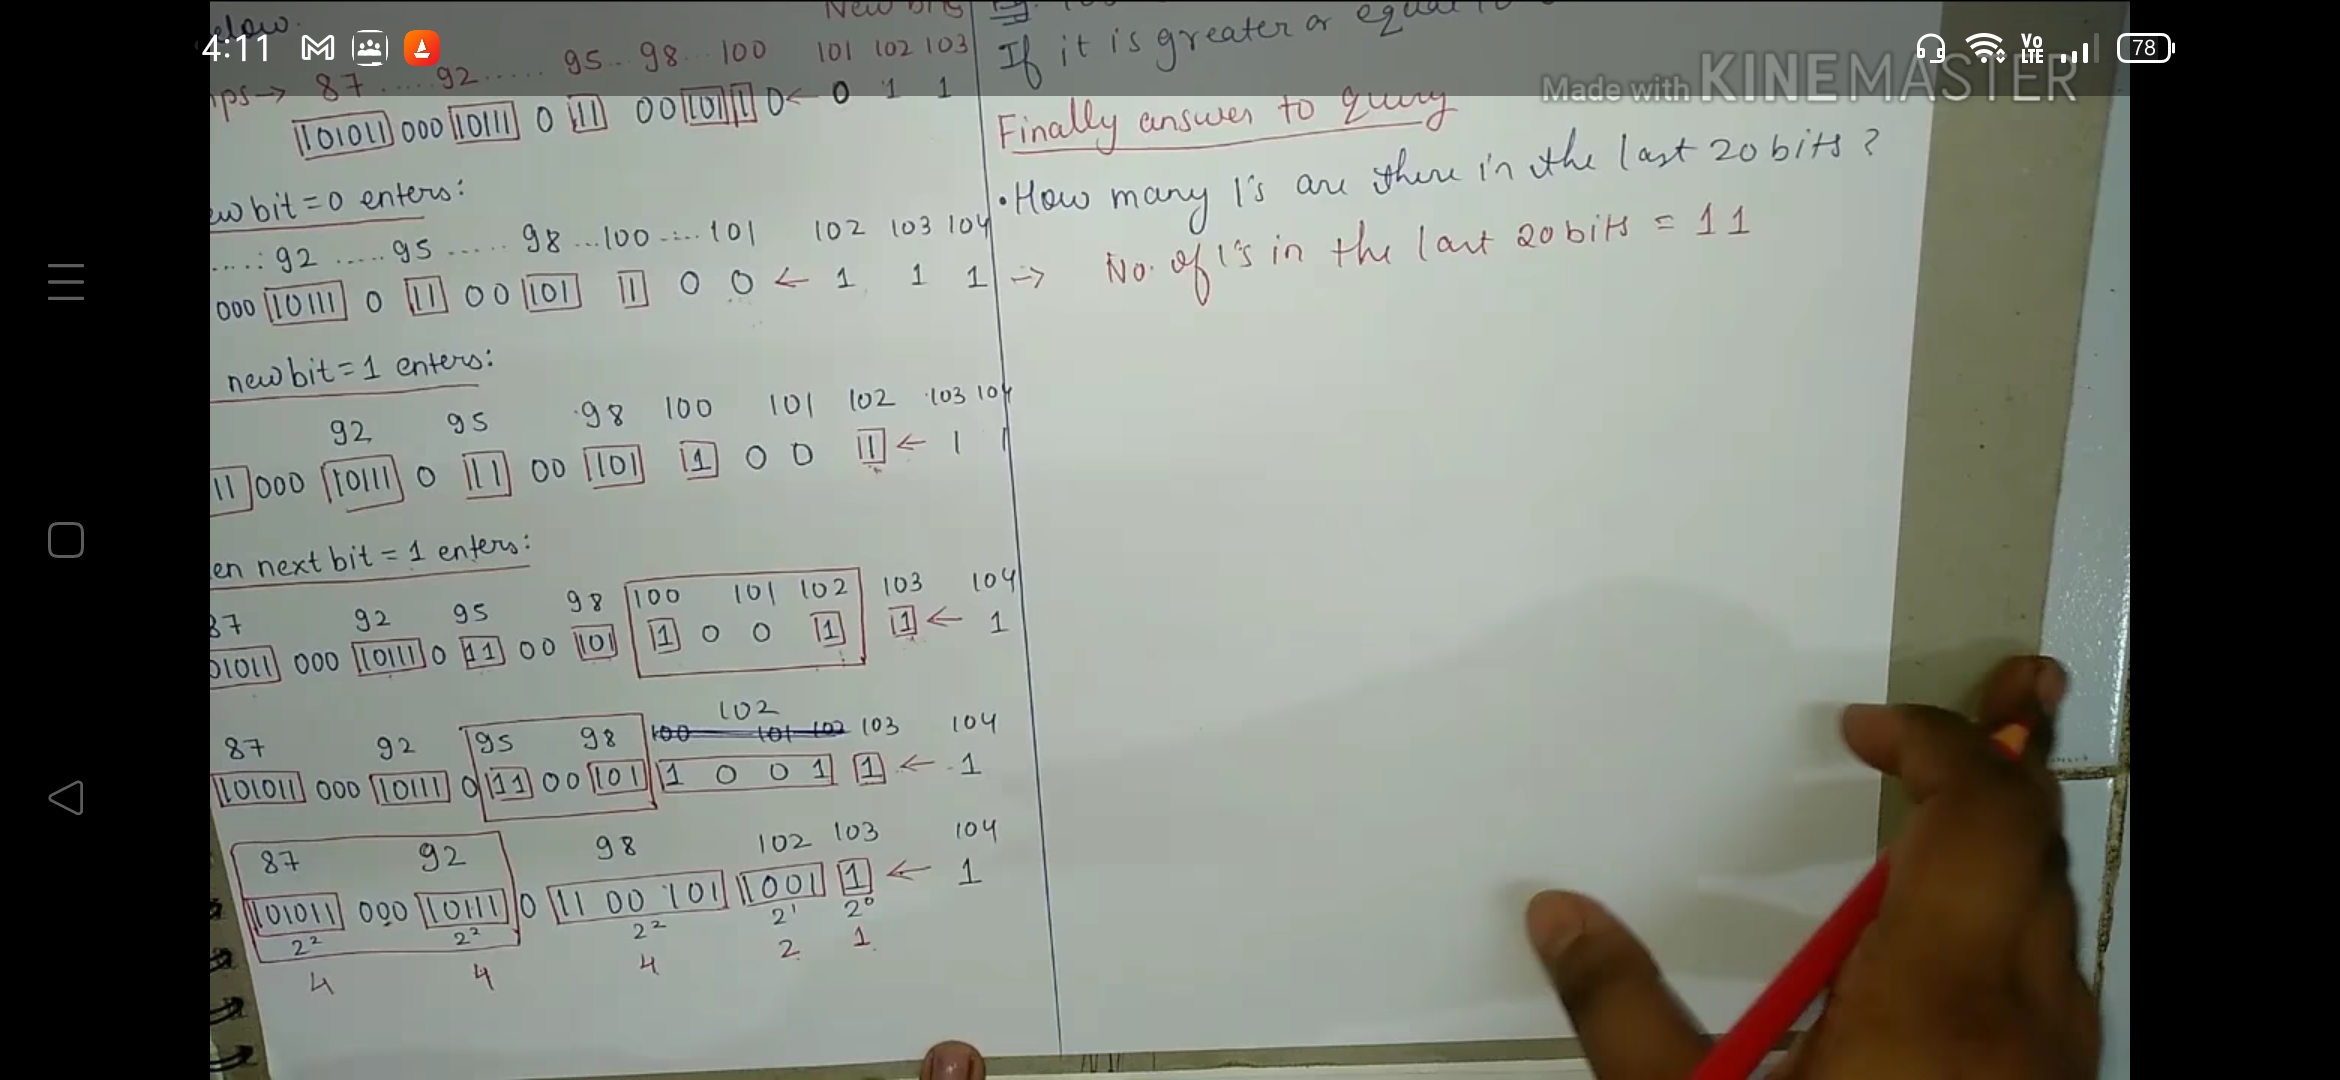 4:11
Vo
LTE
78
Made with KINEMASTER
elow.
New bits
ps→ 87.....92......95...98...100 101 102 103
101011 000 10111 0 11 00 101 1 0← 0 1 1
ew bit = 0 enters:
....: 92 .....95.....98...100.....101 102 103 104
000 10111 0 11 00 101 1 0 0 ← 1 1 1
new bit = 1 enters:
92 95 98 100 101 102 103 104
11 000 10111 0 11 00 101 1 0 0 1 ← 1 1
en next bit = 1 enters:
87 92 95 98 100 101 102 103 104
01011 000 10111 0 11 00 101 1 0 0 1 1 ← 1
102
87 92 95 98 100 101 102 103 104
101011 000 10111 0 11 00 101 1 0 0 1 1 ← 1
87 92 98 102 103 104
101011 000 10111 0 11 00 101 1001 1 ← 1
2² 2² 2² 2¹ 2⁰
4 4 4 2 1
If it is greater or equal
Finally answer to query
• How many 1's are there in the last 20 bits?
→ No. of 1's in the last 20 bits = 11